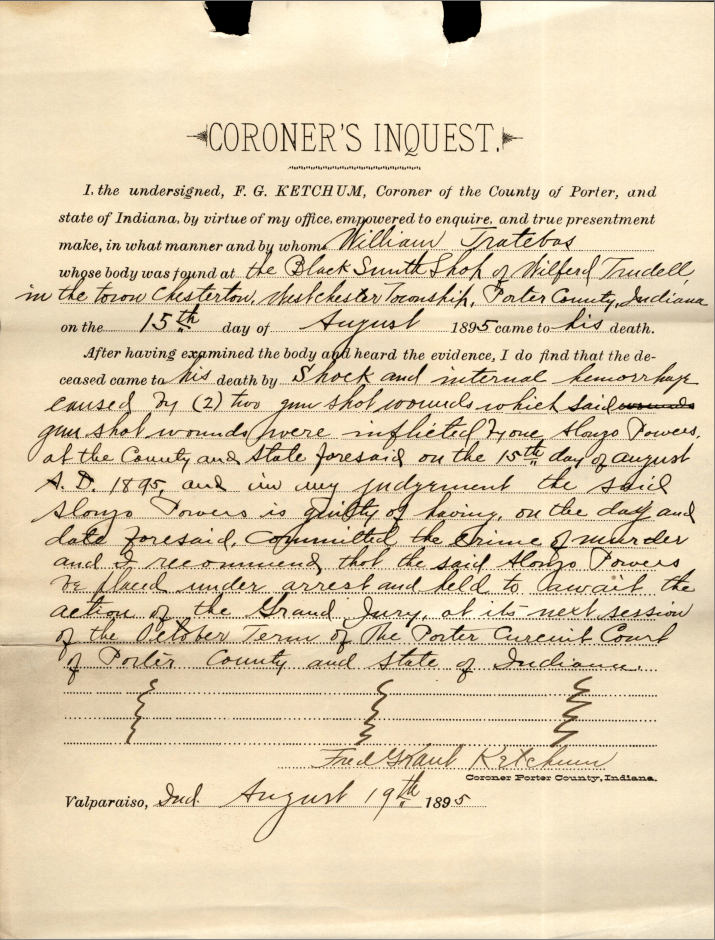 CORONER'S INQUEST.
I, the undersigned, F. G. KETCHUM, Coroner of the County of Porter, and
state of Indiana, by virtue of my office, empowered to enquire, and true presentment
make, in what manner and by whom William Tratebas
whose body was found at the Black Smith Shop of Wilferd Trudell,
in the town Chesterton, Westchester Township, Porter County, Indiana
on the 15th day of August 1895 came to his death.
After having examined the body and heard the evidence, I do find that the de-
ceased came to his death by Shock and internal hemorrhage
caused by (2) two gun shot wounds which said wounds
gun shot wounds were inflicted by one Alonzo Powers,
at the County and State foresaid on the 15th day of august
A.D. 1895, and in my judgement the said
Alonzo Powers is guilty of having, on the day and
date foresaid, Committed the Crime of murder
and I recommend that the said Alonzo Powers
be placed under arrest and held to await the
action of the Grand Jury, at its next session
of the October Term of The Porter Curcuit Court
of Porter County and State of Indiana.
Fred Grant Ketchum
Coroner Porter County, Indiana.
Valparaiso, Ind. August 19th 1895